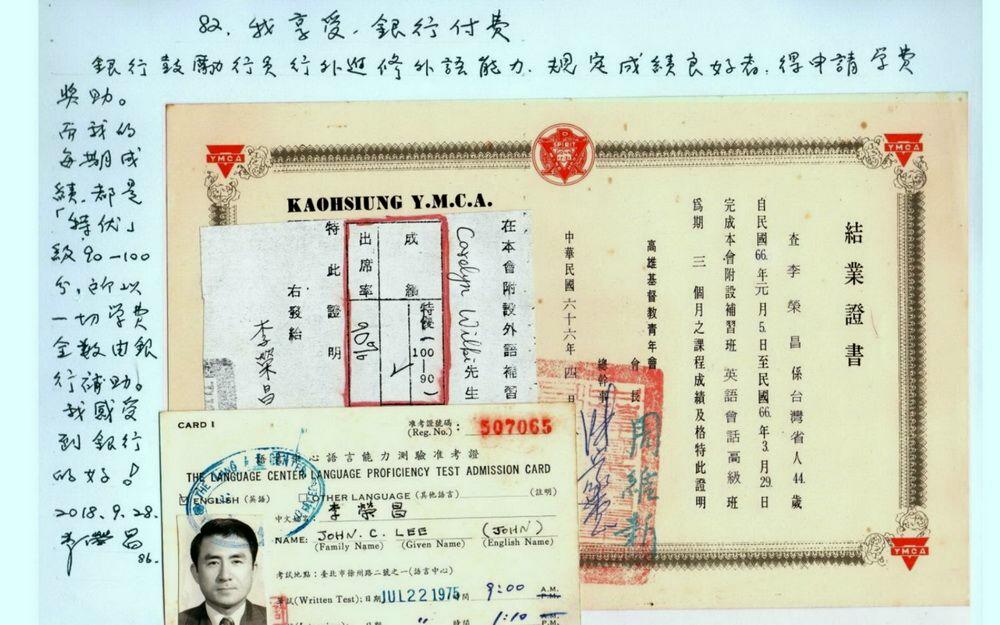 82. 我享受, 銀行付費
銀行鼓勵行員行外進修外語能力, 規定成績良好者, 得申請學費
獎助。
而我的
每期成
績都是
「特优」
級90-100
分, 所以
一切學費
全數由銀
行補助。
我感受
到銀行
的好!
2018.9.28.
李榮昌
86.
YMCA
SPIRIT
YMCA
KAOHSIUNG Y.M.C.A.
結業證書
查李榮昌係台灣省人44歲
自民國66年元月5日至民國66年3月29日
完成本會附設補習班英語會話高級班
為期三個月之課程成績及格特此證明
高雄基督教青年會
會長 周維新
總幹事
中華民國六十六年四
日
YMCA
在本會附設外語補習
Carolyn 先生
成績
特優(100-90)
出席率
90%
特此證明
右發給
李榮昌
CARD I
准考證號碼
(Reg. No.) : 507065
心語言能力測驗准考證
THE LANGUAGE CENTER LANGUAGE PROFICIENCY TEST ADMISSION CARD
ENGLISH (英語) OTHER LANGUAGE (其他語言) (註明)
中文姓名: 李榮昌
NAME: JOHN. C. LEE (JOHN)
(Family Name) (Given Name) (English Name)
考試地點:臺北市徐州路二號之一(語言中心)
試(Written Test): 日期 JUL 22 1975 時間 9:00 A.M. P.M.
日期 " 時間 1:10 A.M. P.M.